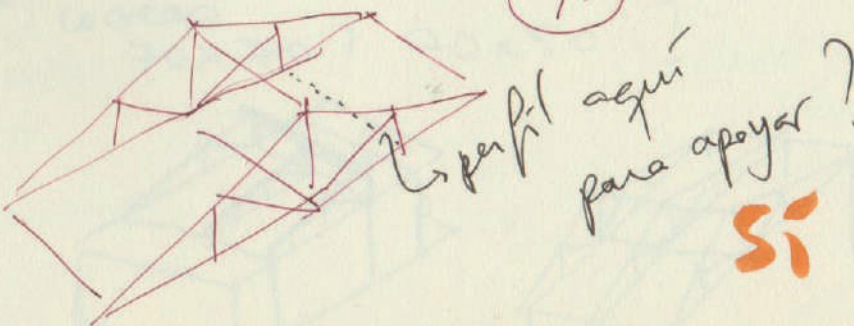 perfil aquí
para apoyar?
SÍ